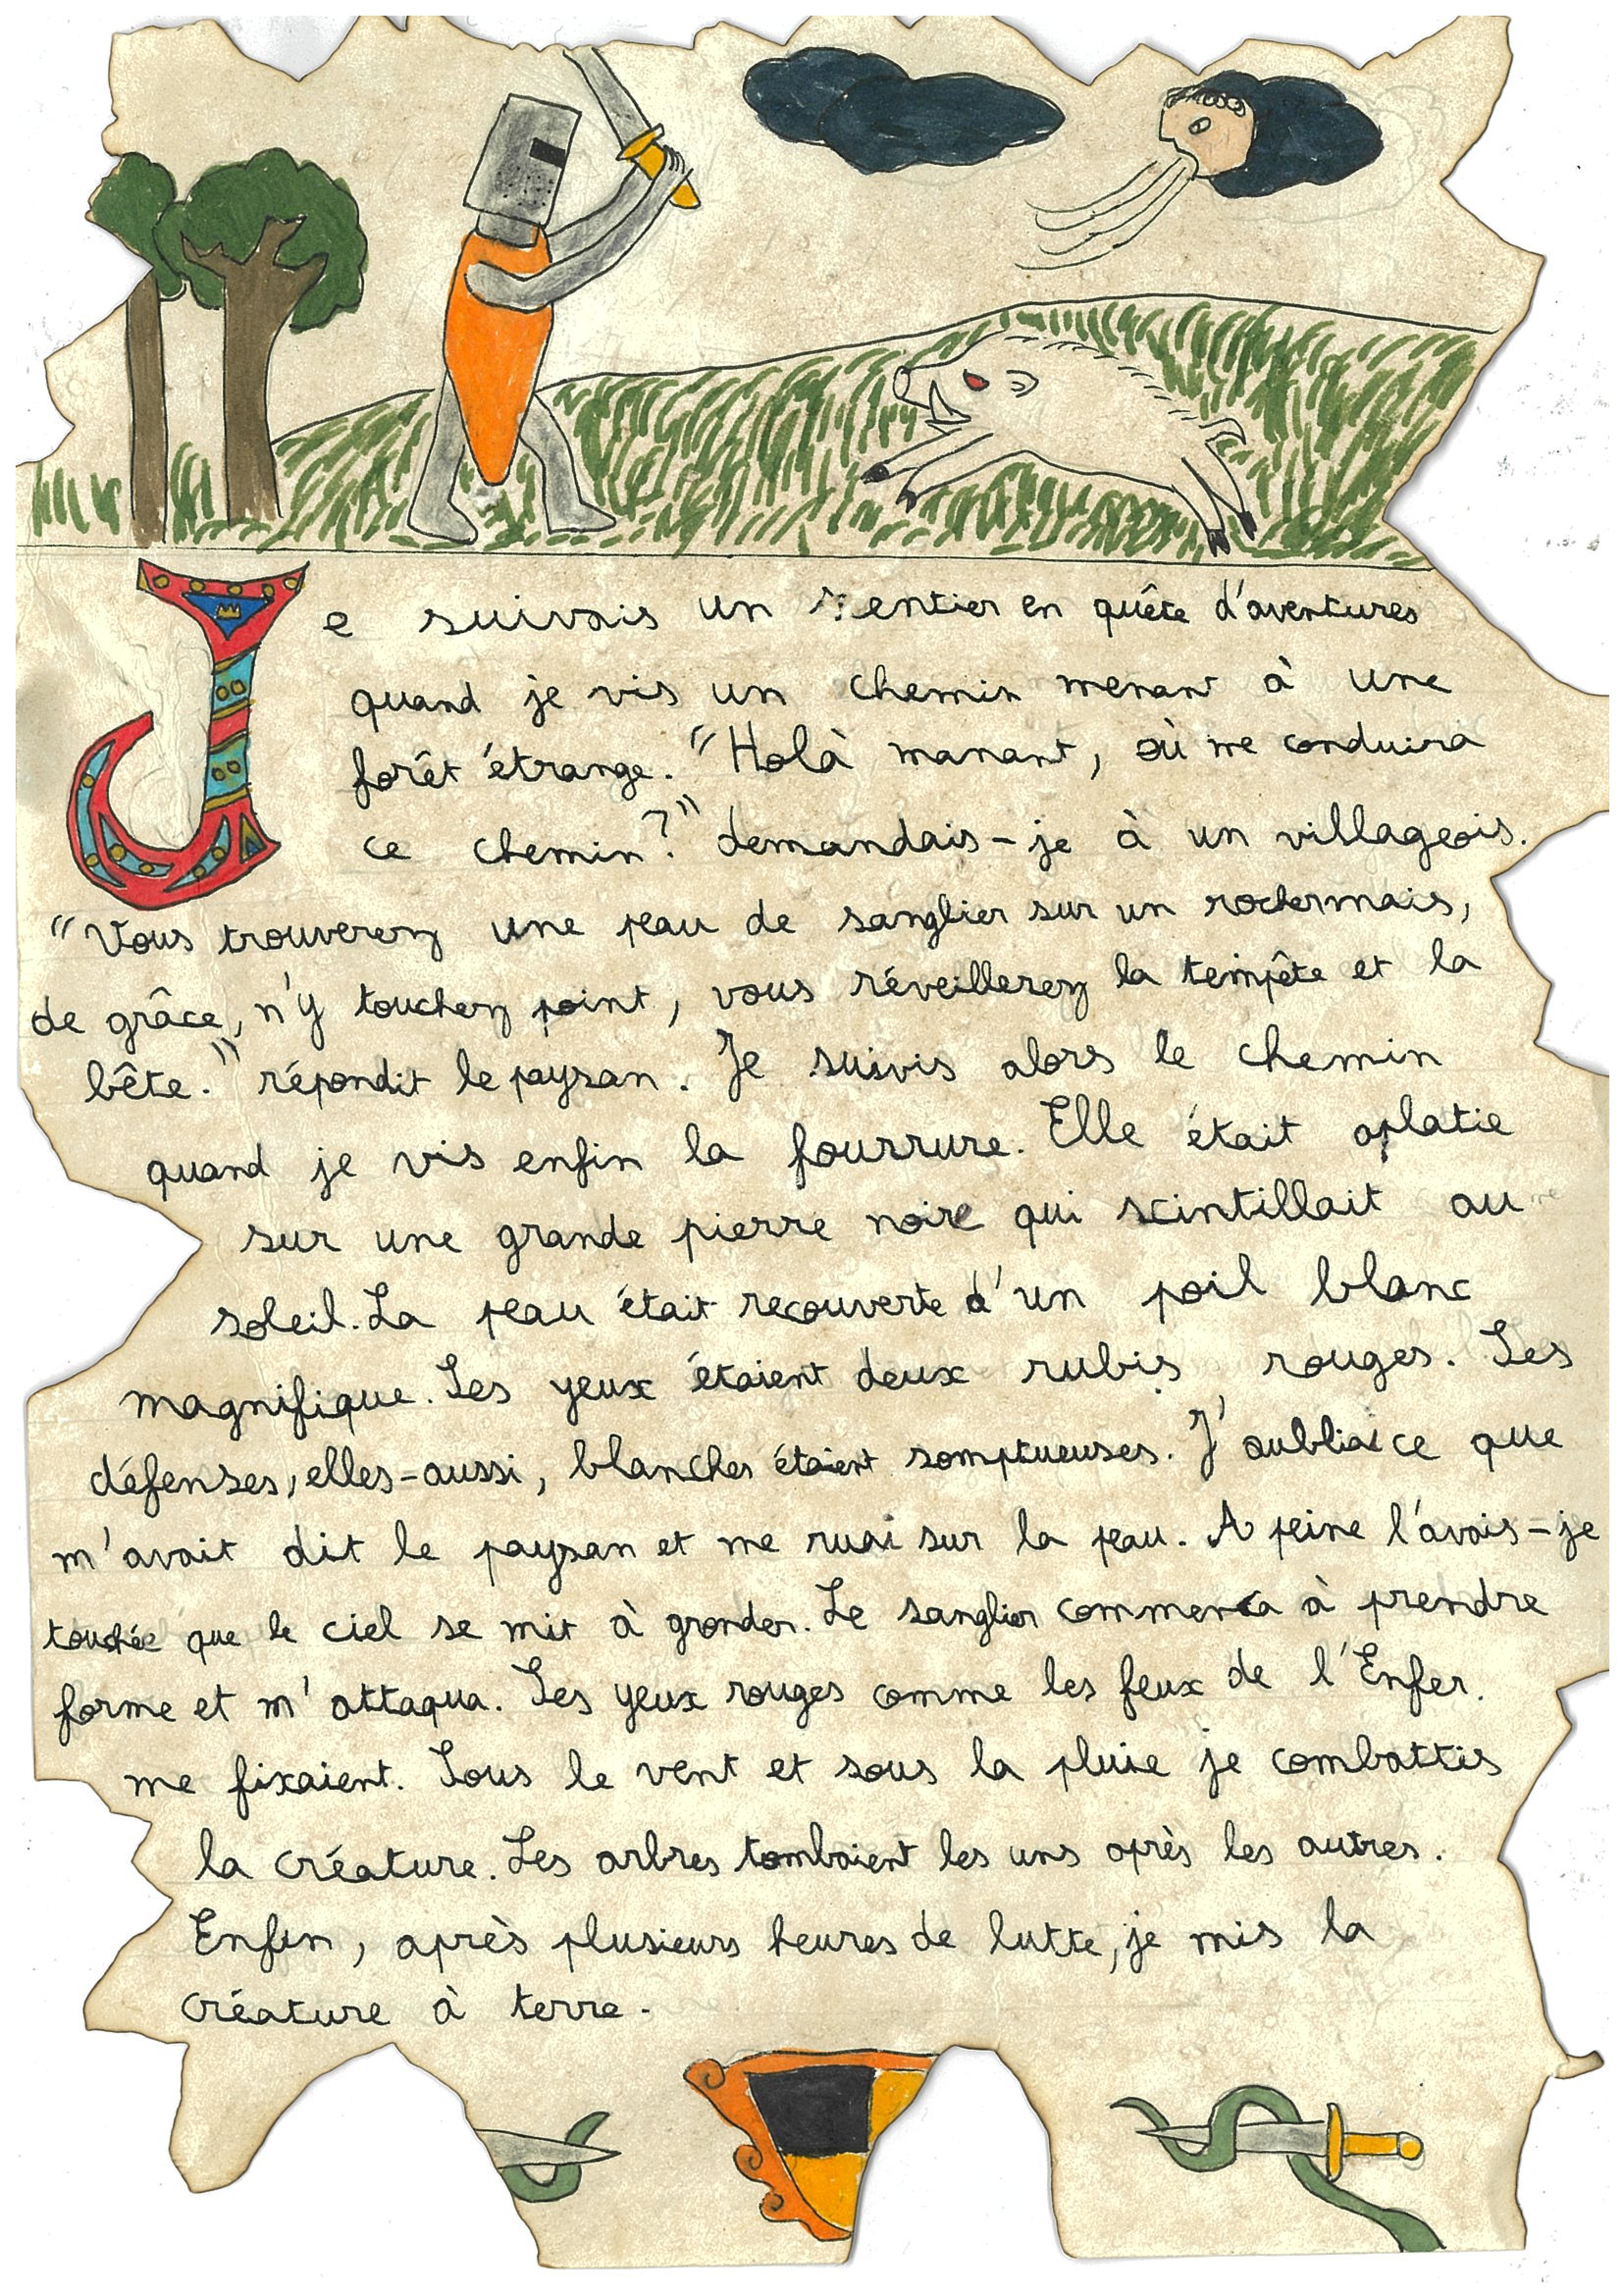 Je suivais un sentier en quête d'aventures
quand je vis un chemin menant à une
forêt étrange. "Holà manant, où me conduira
ce chemin?" demandais-je à un villageois.
"Vous trouverez une peau de sanglier sur un rochermais,
de grâce, n'y touchez point, vous réveillerez la tempête et la
bête." répondit le paysan. Je suivis alors le chemin
quand je vis enfin la fourrure. Elle était aplatie
sur une grande pierre noire qui scintillait au
soleil. La peau était recouverte d'un poil blanc
magnifique. Les yeux étaient deux rubis rouges. Les
défenses, elles-aussi, blanches étaient somptueuses. J'oubliai ce que
m'avait dit le paysan et me ruai sur la peau. A peine l'avais-je
touchée que le ciel se mit à gronder. Le sanglier commença à prendre
forme et m'attaqua. Les yeux rouges comme les feux de l'Enfer.
me fixaient. Sous le vent et sous la pluie je combattis
la créature. Les arbres tombaient les uns après les autres.
Enfin, après plusieurs heures de lutte, je mis la
créature à terre.